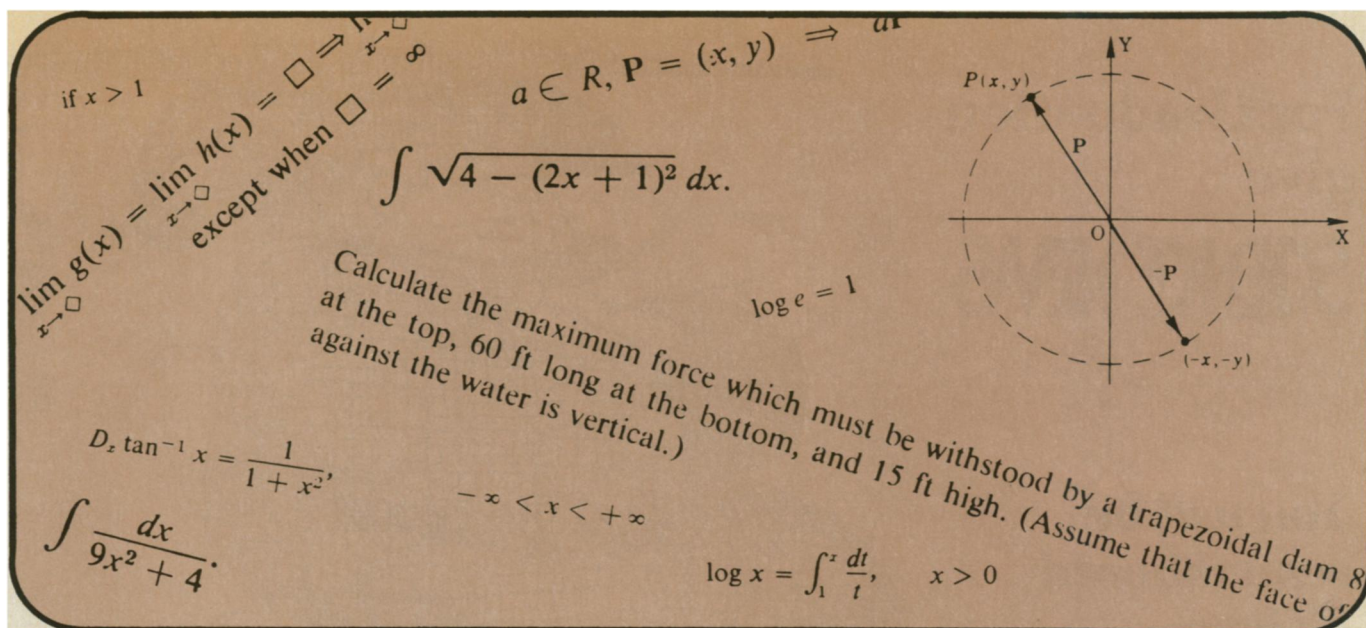 if x > 1
lim g(x) = lim h(x) = □ ⇒
x→□ x→□ x→□
except when □ = ∞
a ∈ R, P = (x, y) ⇒
∫ √4 − (2x + 1)² dx.
Y
P(x, y)
P
O
X
-P
(-x, -y)
log e = 1
Calculate the maximum force which must be withstood by a trapezoidal dam 8
at the top, 60 ft long at the bottom, and 15 ft high. (Assume that the face of
against the water is vertical.)
Dₓ tan⁻¹ x = 1/(1 + x²),
− ∞ < x < + ∞
∫ dx/(9x² + 4).
log x = ∫₁ˣ dt/t, x > 0